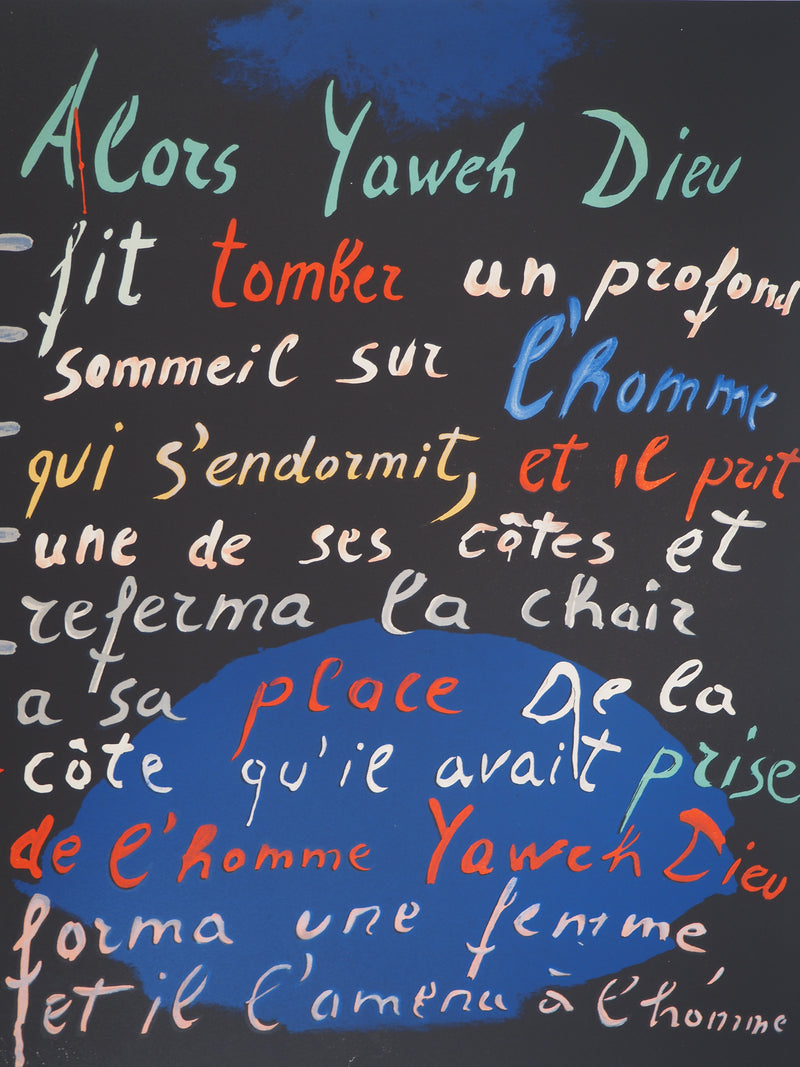 Alors Yaweh Dieu
fit tomber un profond
sommeil sur l'homme
qui s'endormit, et il prit
une de ses côtes et
referma la chair
a sa place De la
côte qu'il avait prise
de l'homme Yaweh Dieu
forma une femme
et il l'amena à l'homme